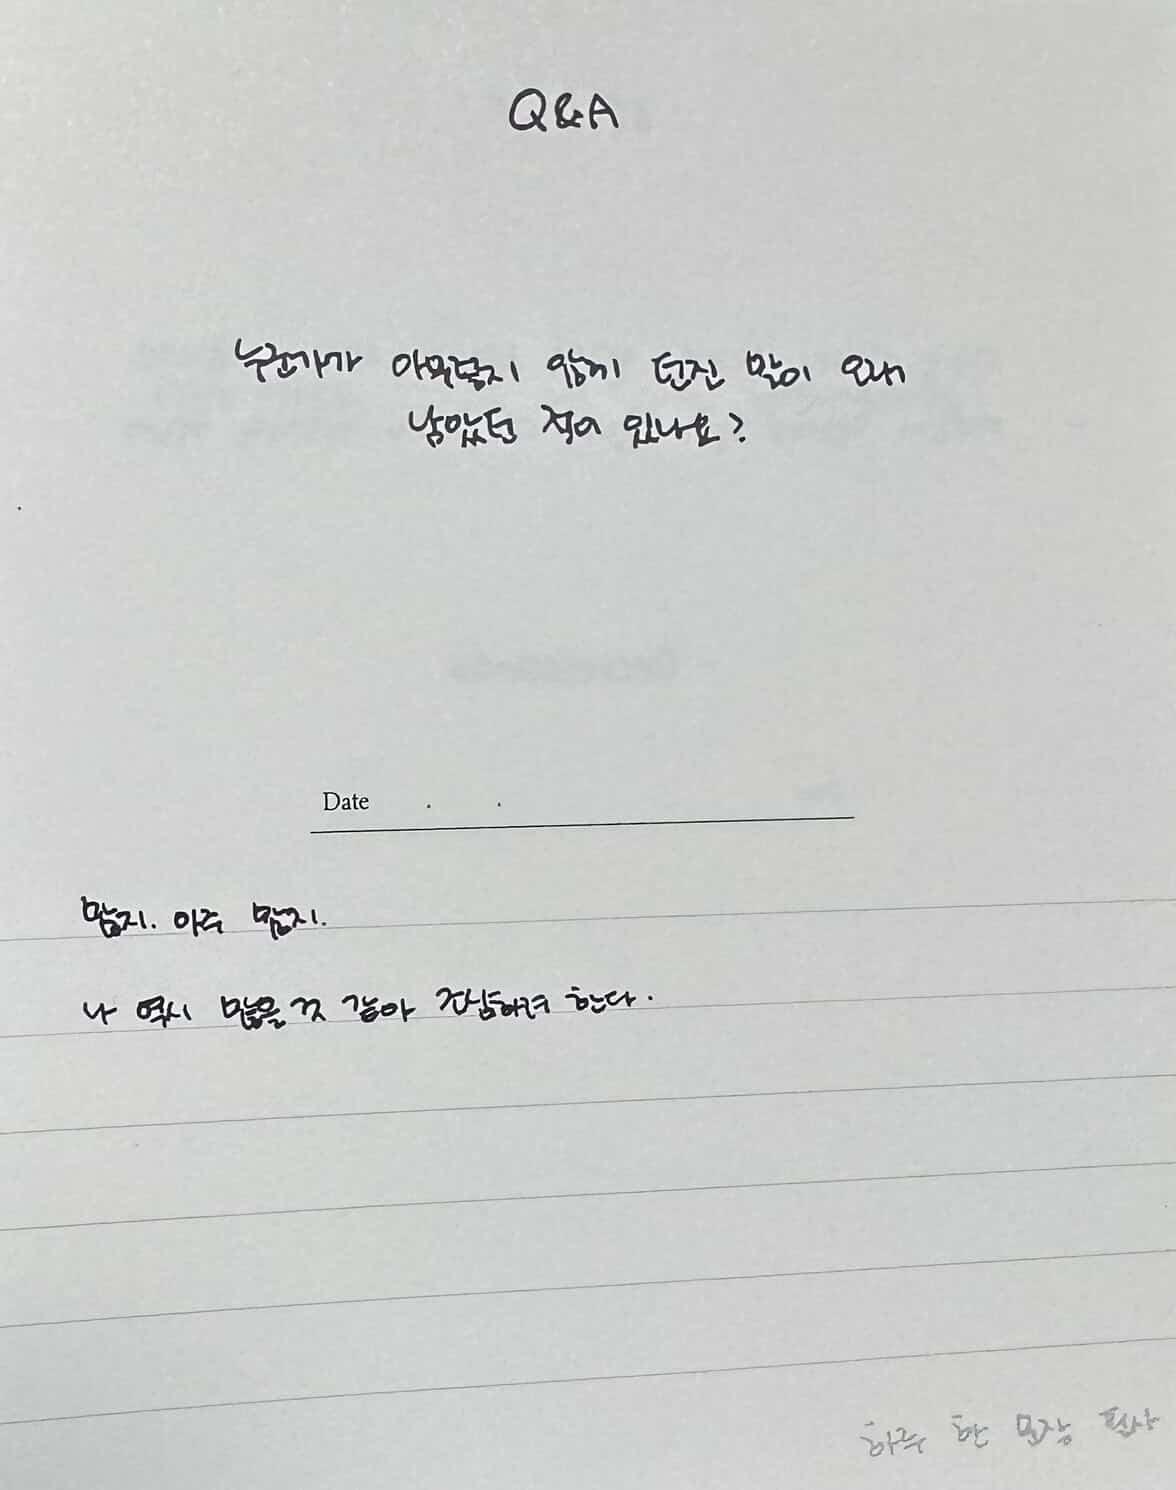 Q&A
누군가가 아무렇지 않게 던진 말이 오래
남았던 적이 있나요?
Date . .
많지. 아주 많지.
나 역시 많을 것 같아 조심하려 한다.
하루 한 문장 필사